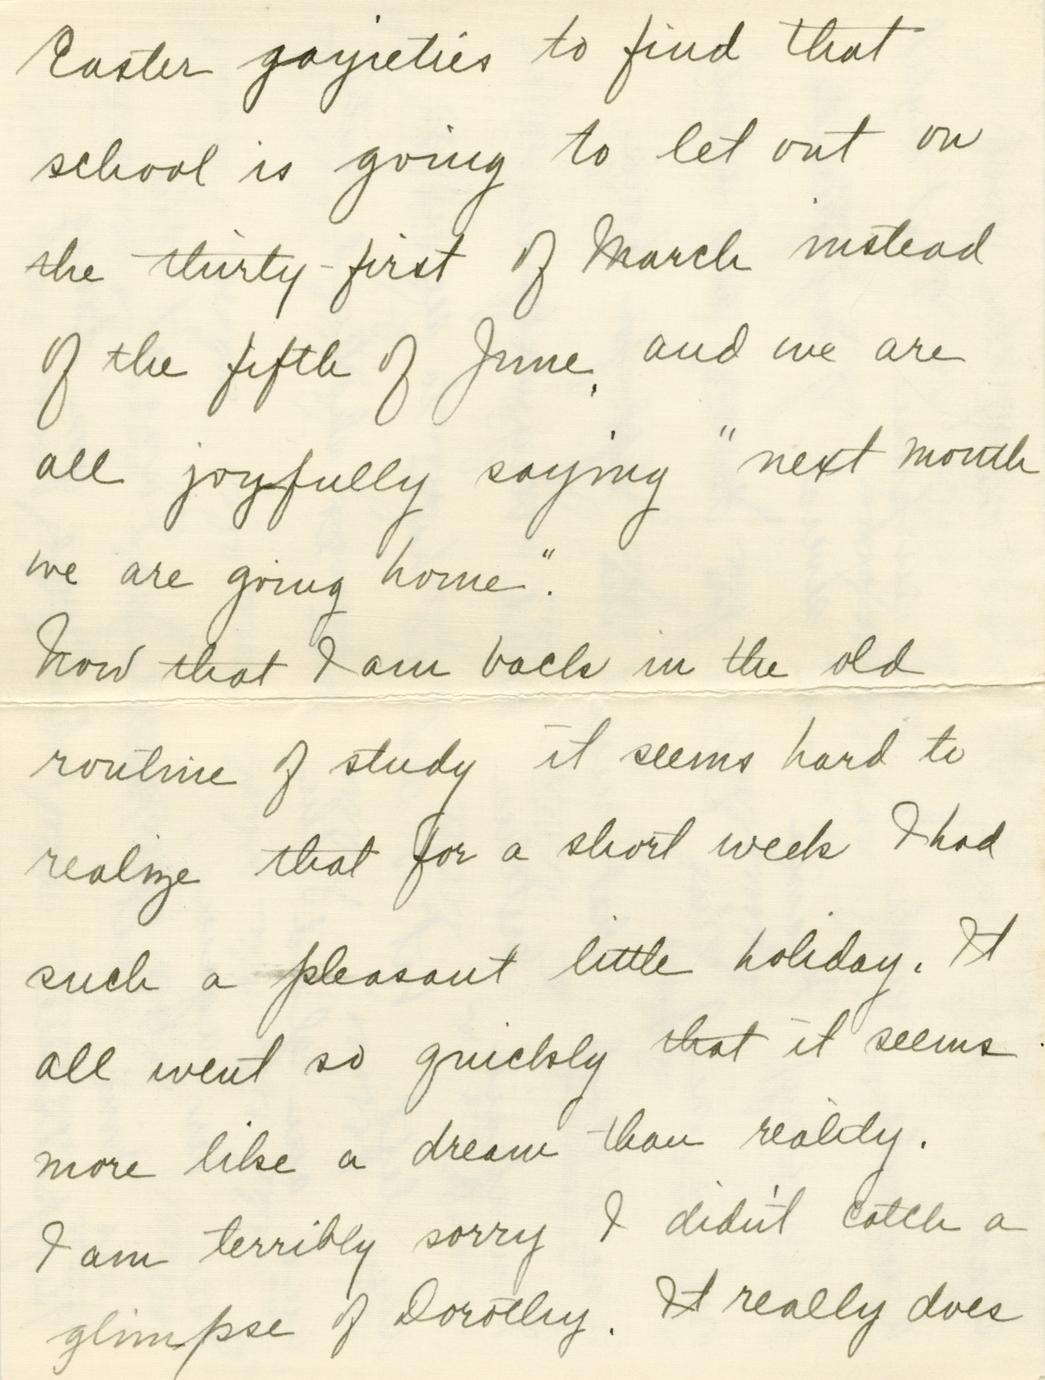 Easter gayieties to find that
school is going to let out on
the thirty-first of March instead
of the fifth of June, and we are
all joyfully saying "next month
we are going home".
Now that I am back in the old
routine of study it seems hard to
realize that for a short week I had
such a pleasant little holiday. It
all went so quickly that it seems
more like a dream than reality.
I am terribly sorry I didn't catch a
glimpse of Dorothy. It really does